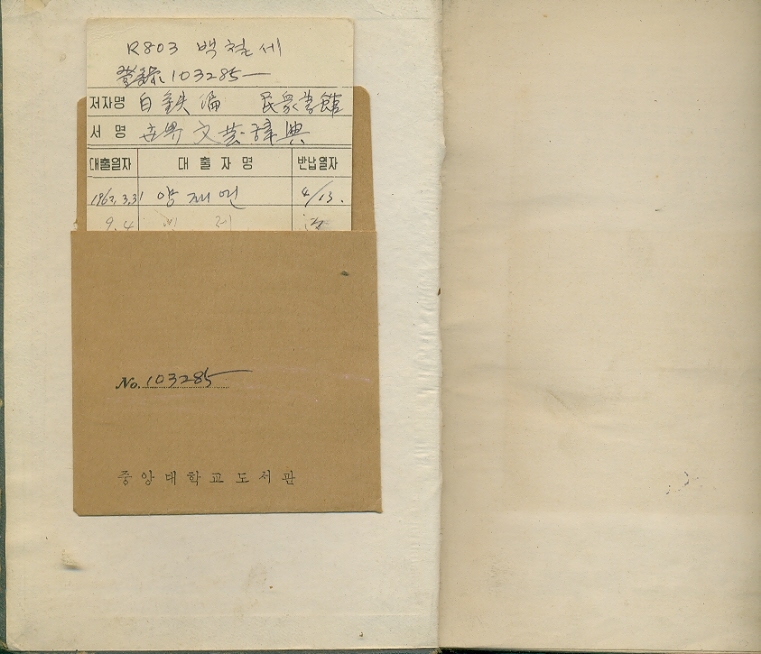 R803 백철세
登録 103285
저자명 白鉄 編 民衆書館
서 명 世界文芸辞典
대출일자 대 출 자 명 반납일자
양재연 4/13.
9.4
No. 103285
중앙대학교도서관